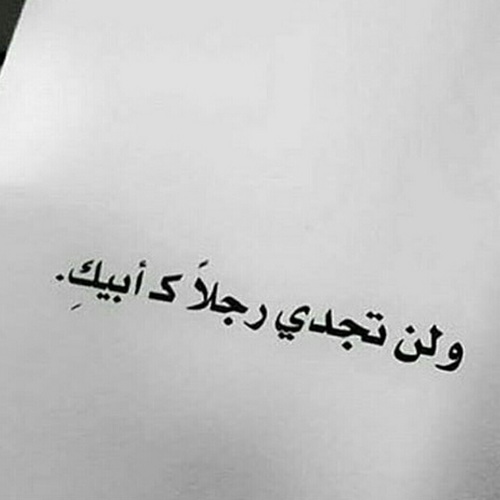 ولن تجدي رجلاً كـ أبيكِ.